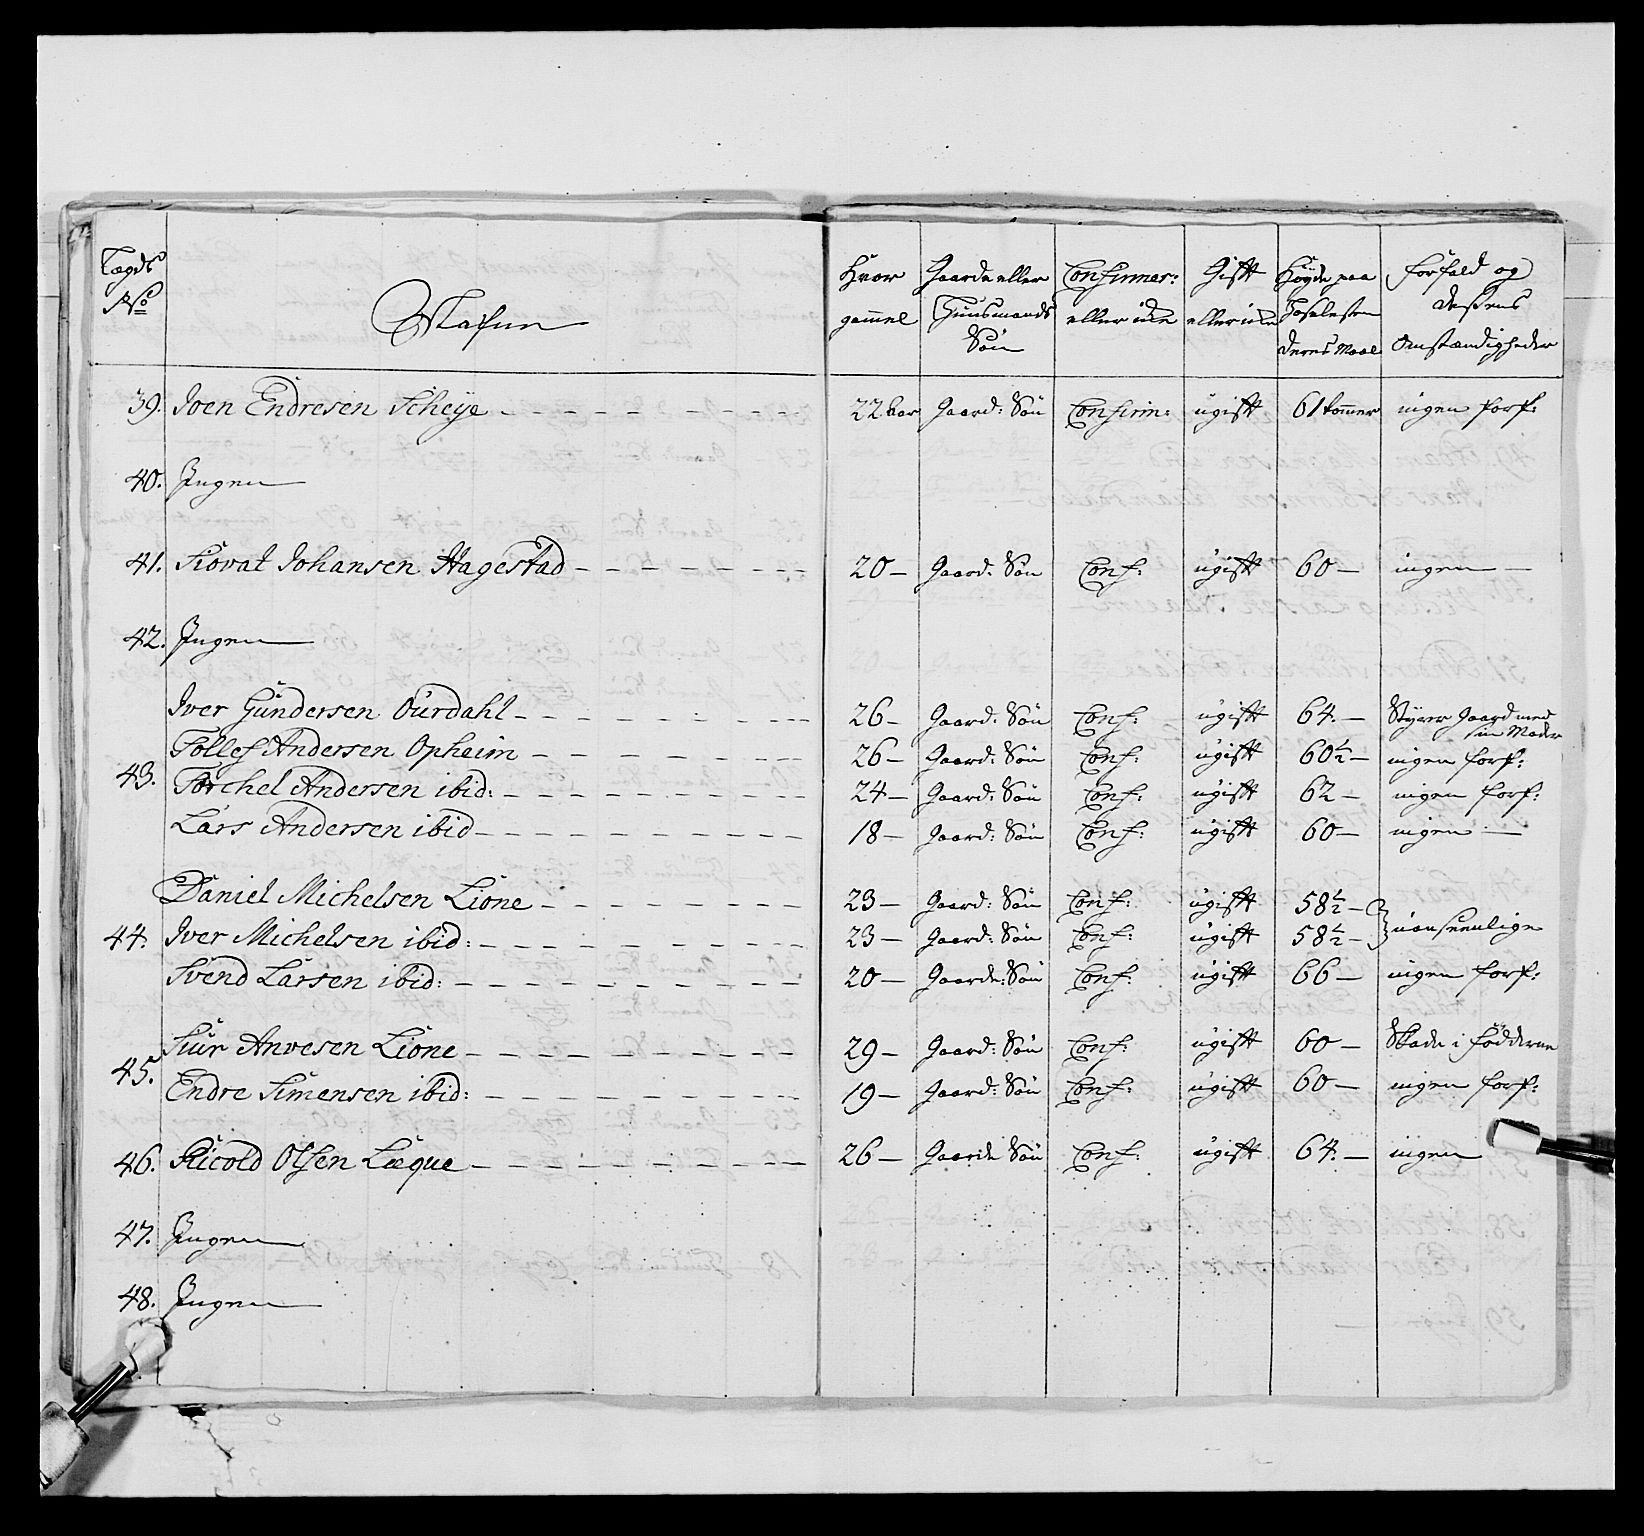 Lægds No | Nafn | Hvor gammel | Gaarde eller Huusmands Søn | Confirmer: eller icke | Gift eller icke | Høyde paa Hoselesten deres Maal | Forfald og deßens Omstændigheder
39. Joen Endresen Scheije | 22 aar | Gaard: Søn | Confirm: | ugift | 61 tommer | ingen forf:
40. Ingen
41. Siovat Johansen Hagestad | 20 — | Gaard: Søn | Conf: | ugift | 60 — | ingen —
42. Ingen
43. Iver Gundersen Ourdahl | 26 — | Gaard: Søn | Conf: | ugift | 64. — | Styrer Gaard med sin Moder
Tollef Andersen Opheim | 26 — | Gaard: Søn | Conf: | ugift | 60½ — | ingen forf:
Torchel Andersen ibid: | 24 — | Gaard: Søn | Conf: | ugift | 62 — | ingen forf:
Lars Andersen ibid | 18 — | Gaard: Søn | Conf: | ugift | 60 — | ingen —
44. Daniel Michelsen Lione | 23 — | Gaard: Søn | Conf: | ugift | 58½ — | uanseenlige
Iver Michelsen ibid: | 23 — | Gaard: Søn | Conf: | ugift | 58½ —
Svend Larsen ibid: | 20 — | Gaarde: Søn | Conf: | ugift | 66 — | ingen forf:
45. Siur Anvesen Lione | 29 — | Gaard: Søn | Conf: | ugift | 60 — | Skade i Fødderne
Endre Simensen ibid: | 19 — | Gaard: Søn | Conf: | ugift | 60 — | ingen forf:
46. Ricold Olsen Læque | 26 — | Gaarde Søn | Conf: | ugift | 64. — | ingen
47. Ingen
48. Ingen